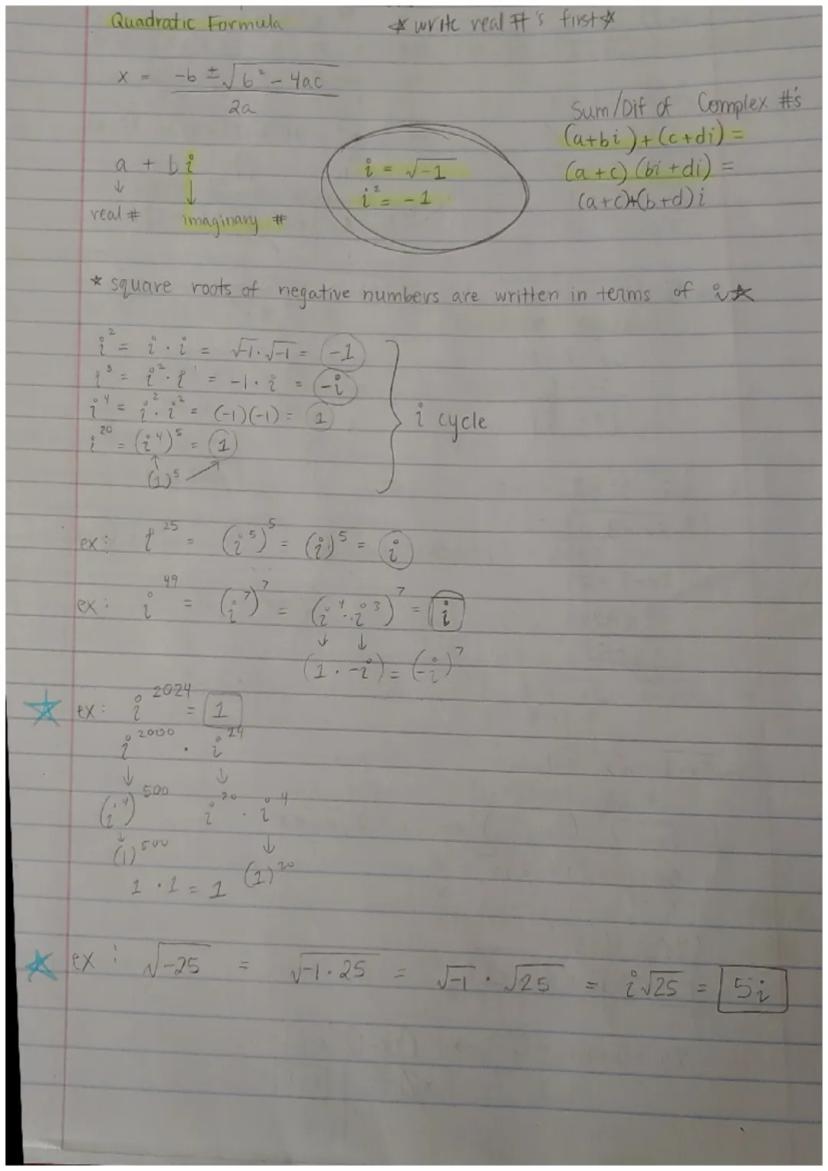 Quadratic Formula ☆ write real #'s first ☆
x = -b ± √(b² - 4ac) / 2a
Sum/Dif of Complex #'s
(a+bi)+(c+di) =
(a+c) (bi+di) =
(a+c)+(b+d)i
a + bi
↓ ↓
real # imaginary #
i = √-1
i² = -1
* square roots of negative numbers are written in terms of i ☆
i² = i · i = √-1 · √-1 = -1
i³ = i² · i¹ = -1 · i = -i
i⁴ = i² · i² = (-1)(-1) = 1
i²⁰ = (i⁴)⁵ = 1
(1)⁵
i cycle
ex: i²⁵ = (i⁵)⁵ = (i)⁵ = i
ex: i⁴⁹ = (i⁷)⁷ = (i⁴ · i³)⁷ = i
↓ ↓
(1 · -i) = (-i)⁷
☆ ex: i²⁰²⁴ = 1
i²⁰⁰⁰ · i²⁴
↓ ↓
(i⁴)⁵⁰⁰ i²⁰ · i⁴
↓ ↓
(1)⁵⁰⁰ (1)²⁰
1 · 1 = 1
☆ ex: √-25 = √-1 · 25 = √-1 · √25 = i√25 = 5i